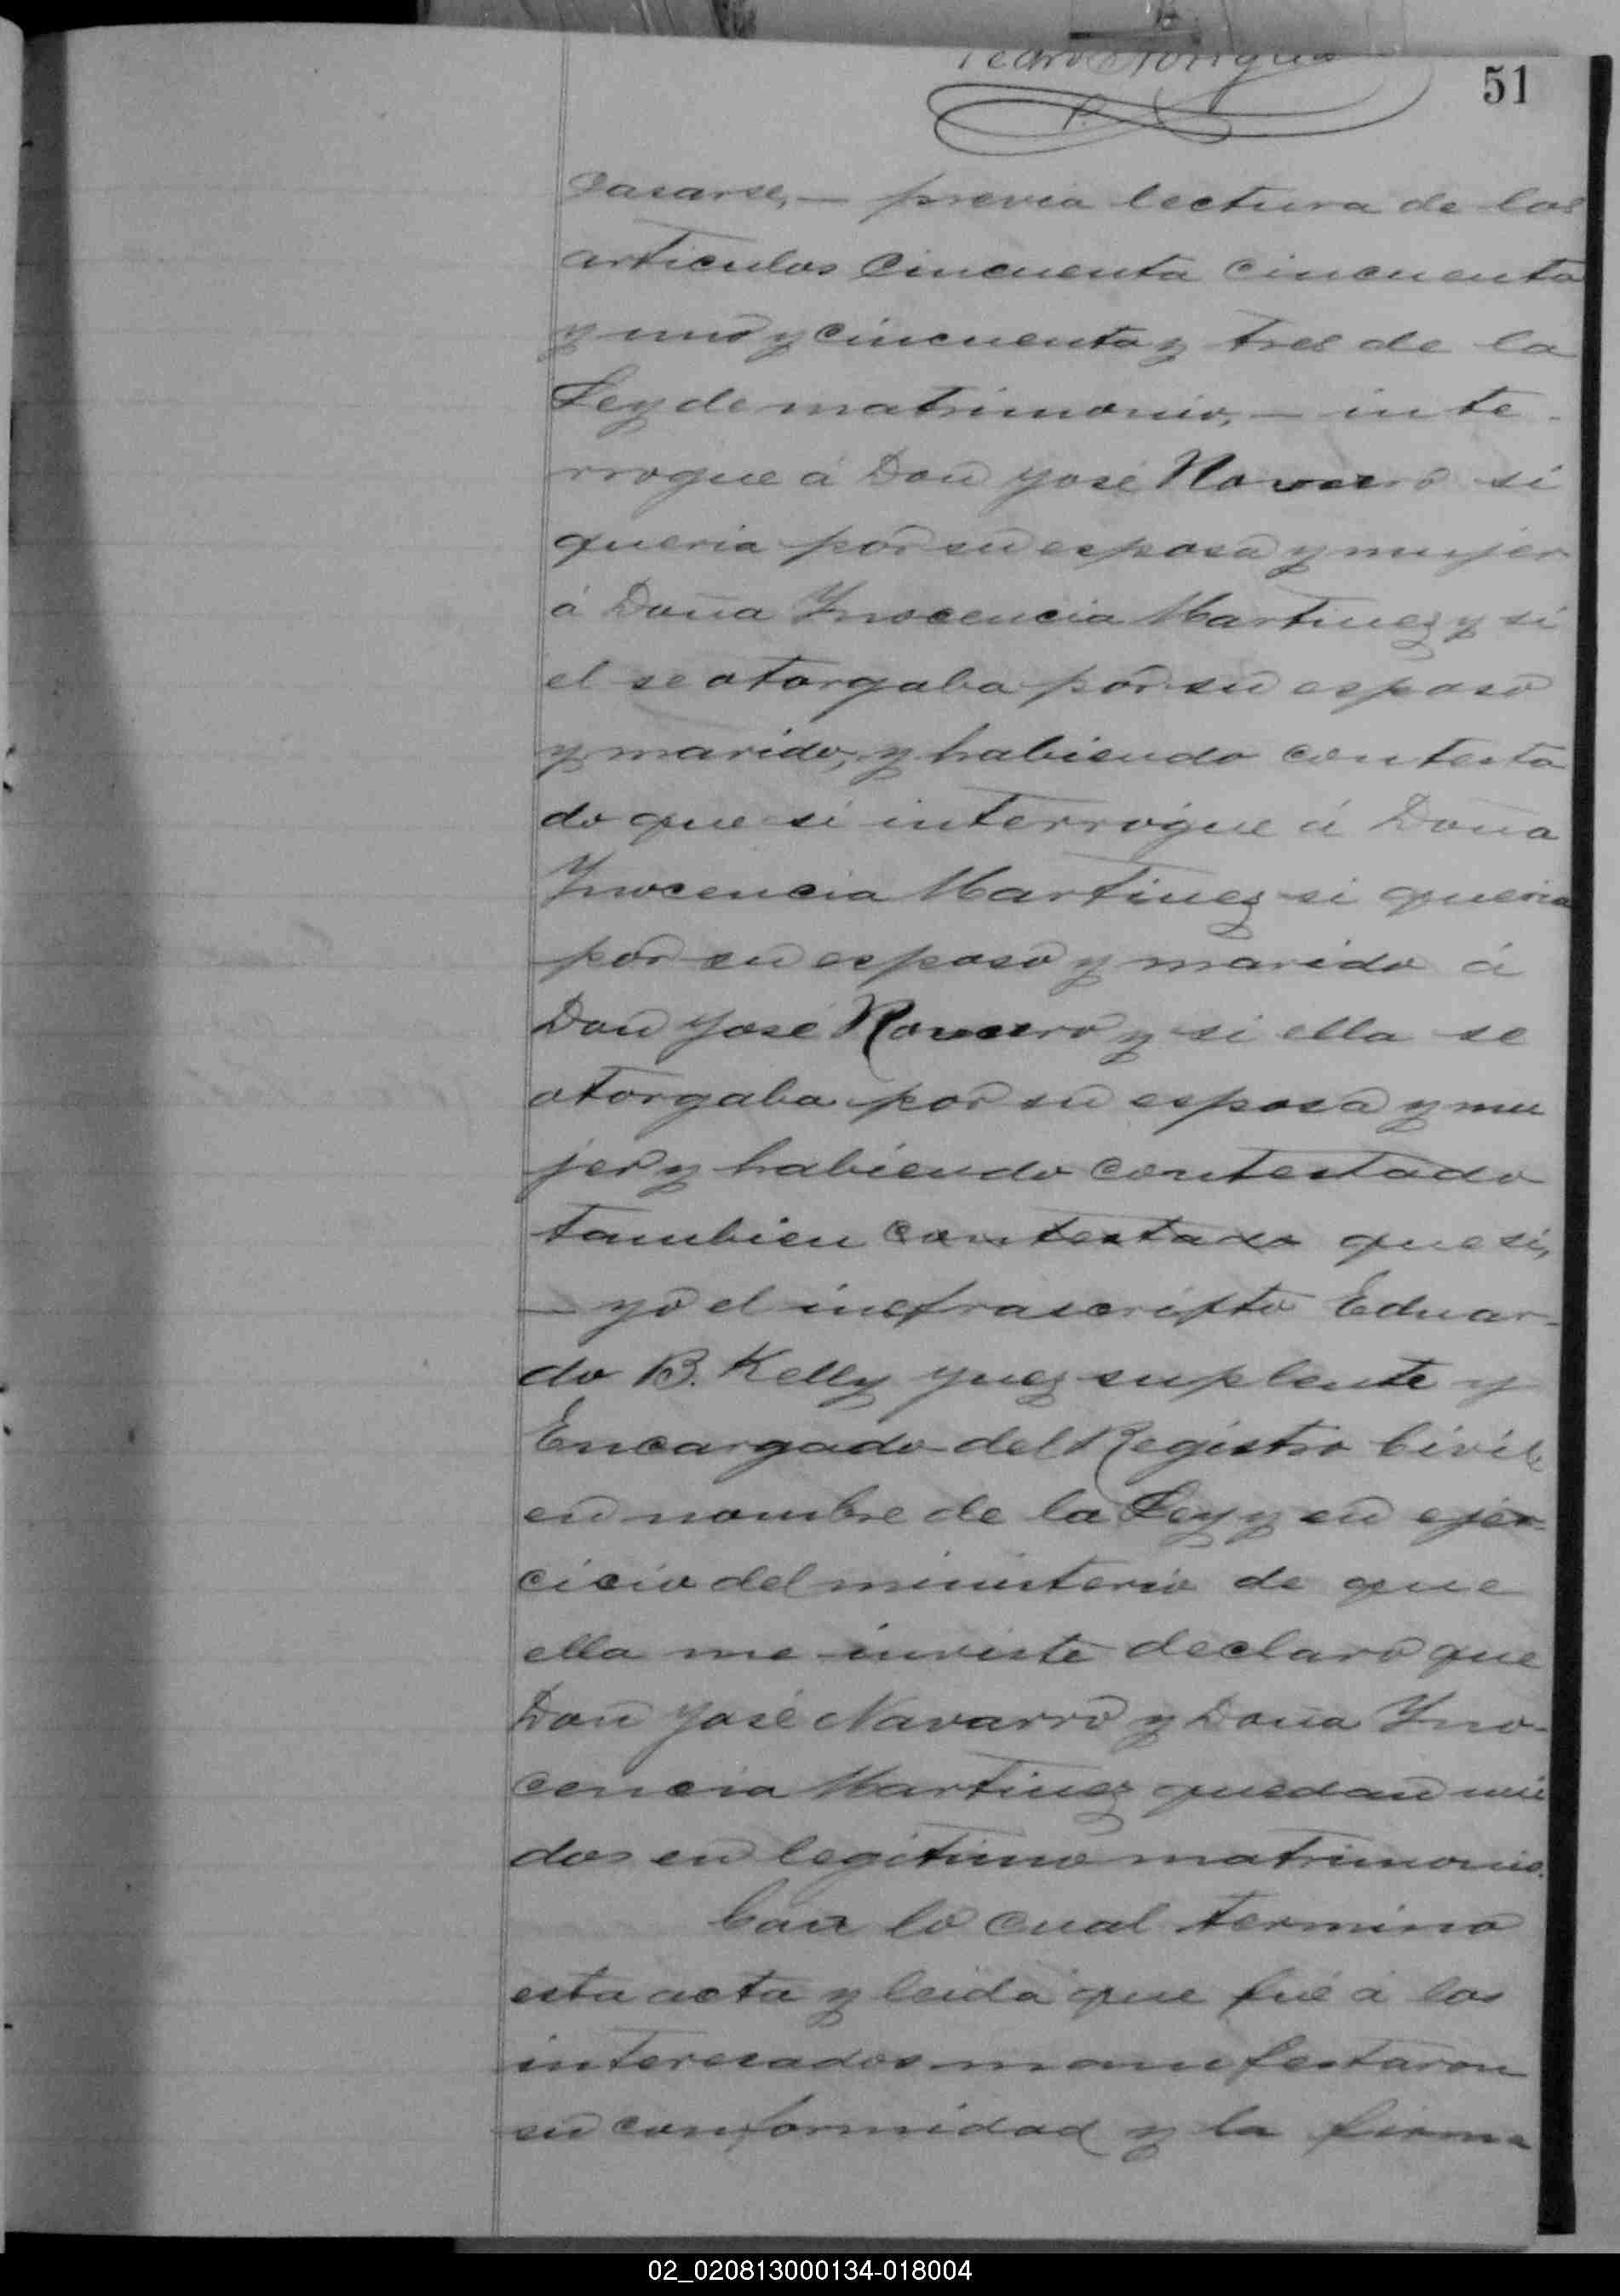 51
casarse, — previa lectura de los
articulos Cincuenta cincuenta
y uno y cincuenta y tres de la
Ley de matrimonio, — inte-
rrogue á Don José Navarro si
queria por su esposa y mujer
á Doña Ynocencia Martinez y si
el se otorgaba por su esposo
y marido, y habiendo contesta
do que si interrógue á Doña
Ynocencia Martinez si queria
por su esposo y marido á
Don José Navarro y si ella se
otorgaba por su esposa y mu
jer y habiendo contestado
tambien contestado que si,
— yo el inefrascripto Eduar-
do B. Kelly Juez suplente y
Encargado del Registro Civil,
en nombre de la Ley y en ejer-
cicio del ministerio de que
ella me inviste declaro que
Don José Navarro y Doña Yno-
cencia Martinez quedan uni
dos en legitimo matrimonio.
Con lo cual termino
esta acta y leida que fué á los
interesados manifestaron
su conformidad y la firma
02_020813000134-018004